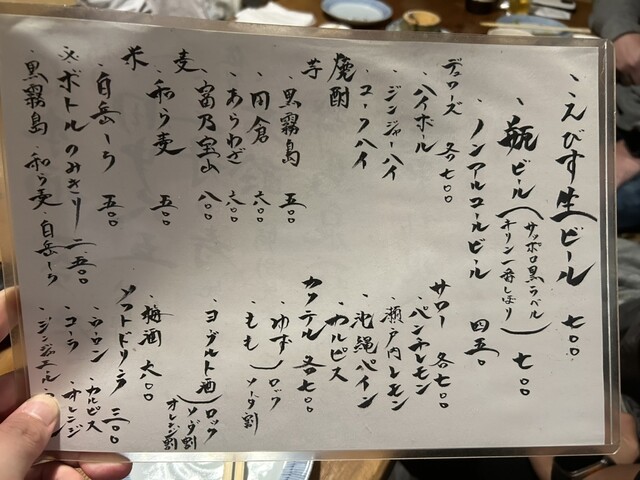 ・えびす生ビール 七〇〇
・瓶ビール(サッポロ黒ラベル
キリン一番しぼり) 七〇〇
・ノンアルコールビール 四五〇
デュワーズ 各七〇〇
・ハイボール
・ジンジャーハイ
・コークハイ
サワー 各七〇〇
・パンチレモン
・瀬戸内レモン
・沖縄パイン
・カルピス
焼酎
芋
・黒霧島 五〇〇
・田倉 六〇〇
・あらわざ 六〇〇
・富乃宝山 八〇〇
麦
・和ら麦 五〇〇
米
・白岳しろ 五〇〇
※ボトルのみきり 二五〇〇
・黒霧島・和ら麦・白岳しろ
カクテル 各七〇〇
・ゆず
・もも)ロック
ソーダ割
・ヨーグルト酒)ロック
ソーダ割
オレンジ割
・梅酒 六〇〇
ソフトドリンク 三〇〇
・ウーロン・カルピス
・コーラ・オレンジ
・ジンジャエール